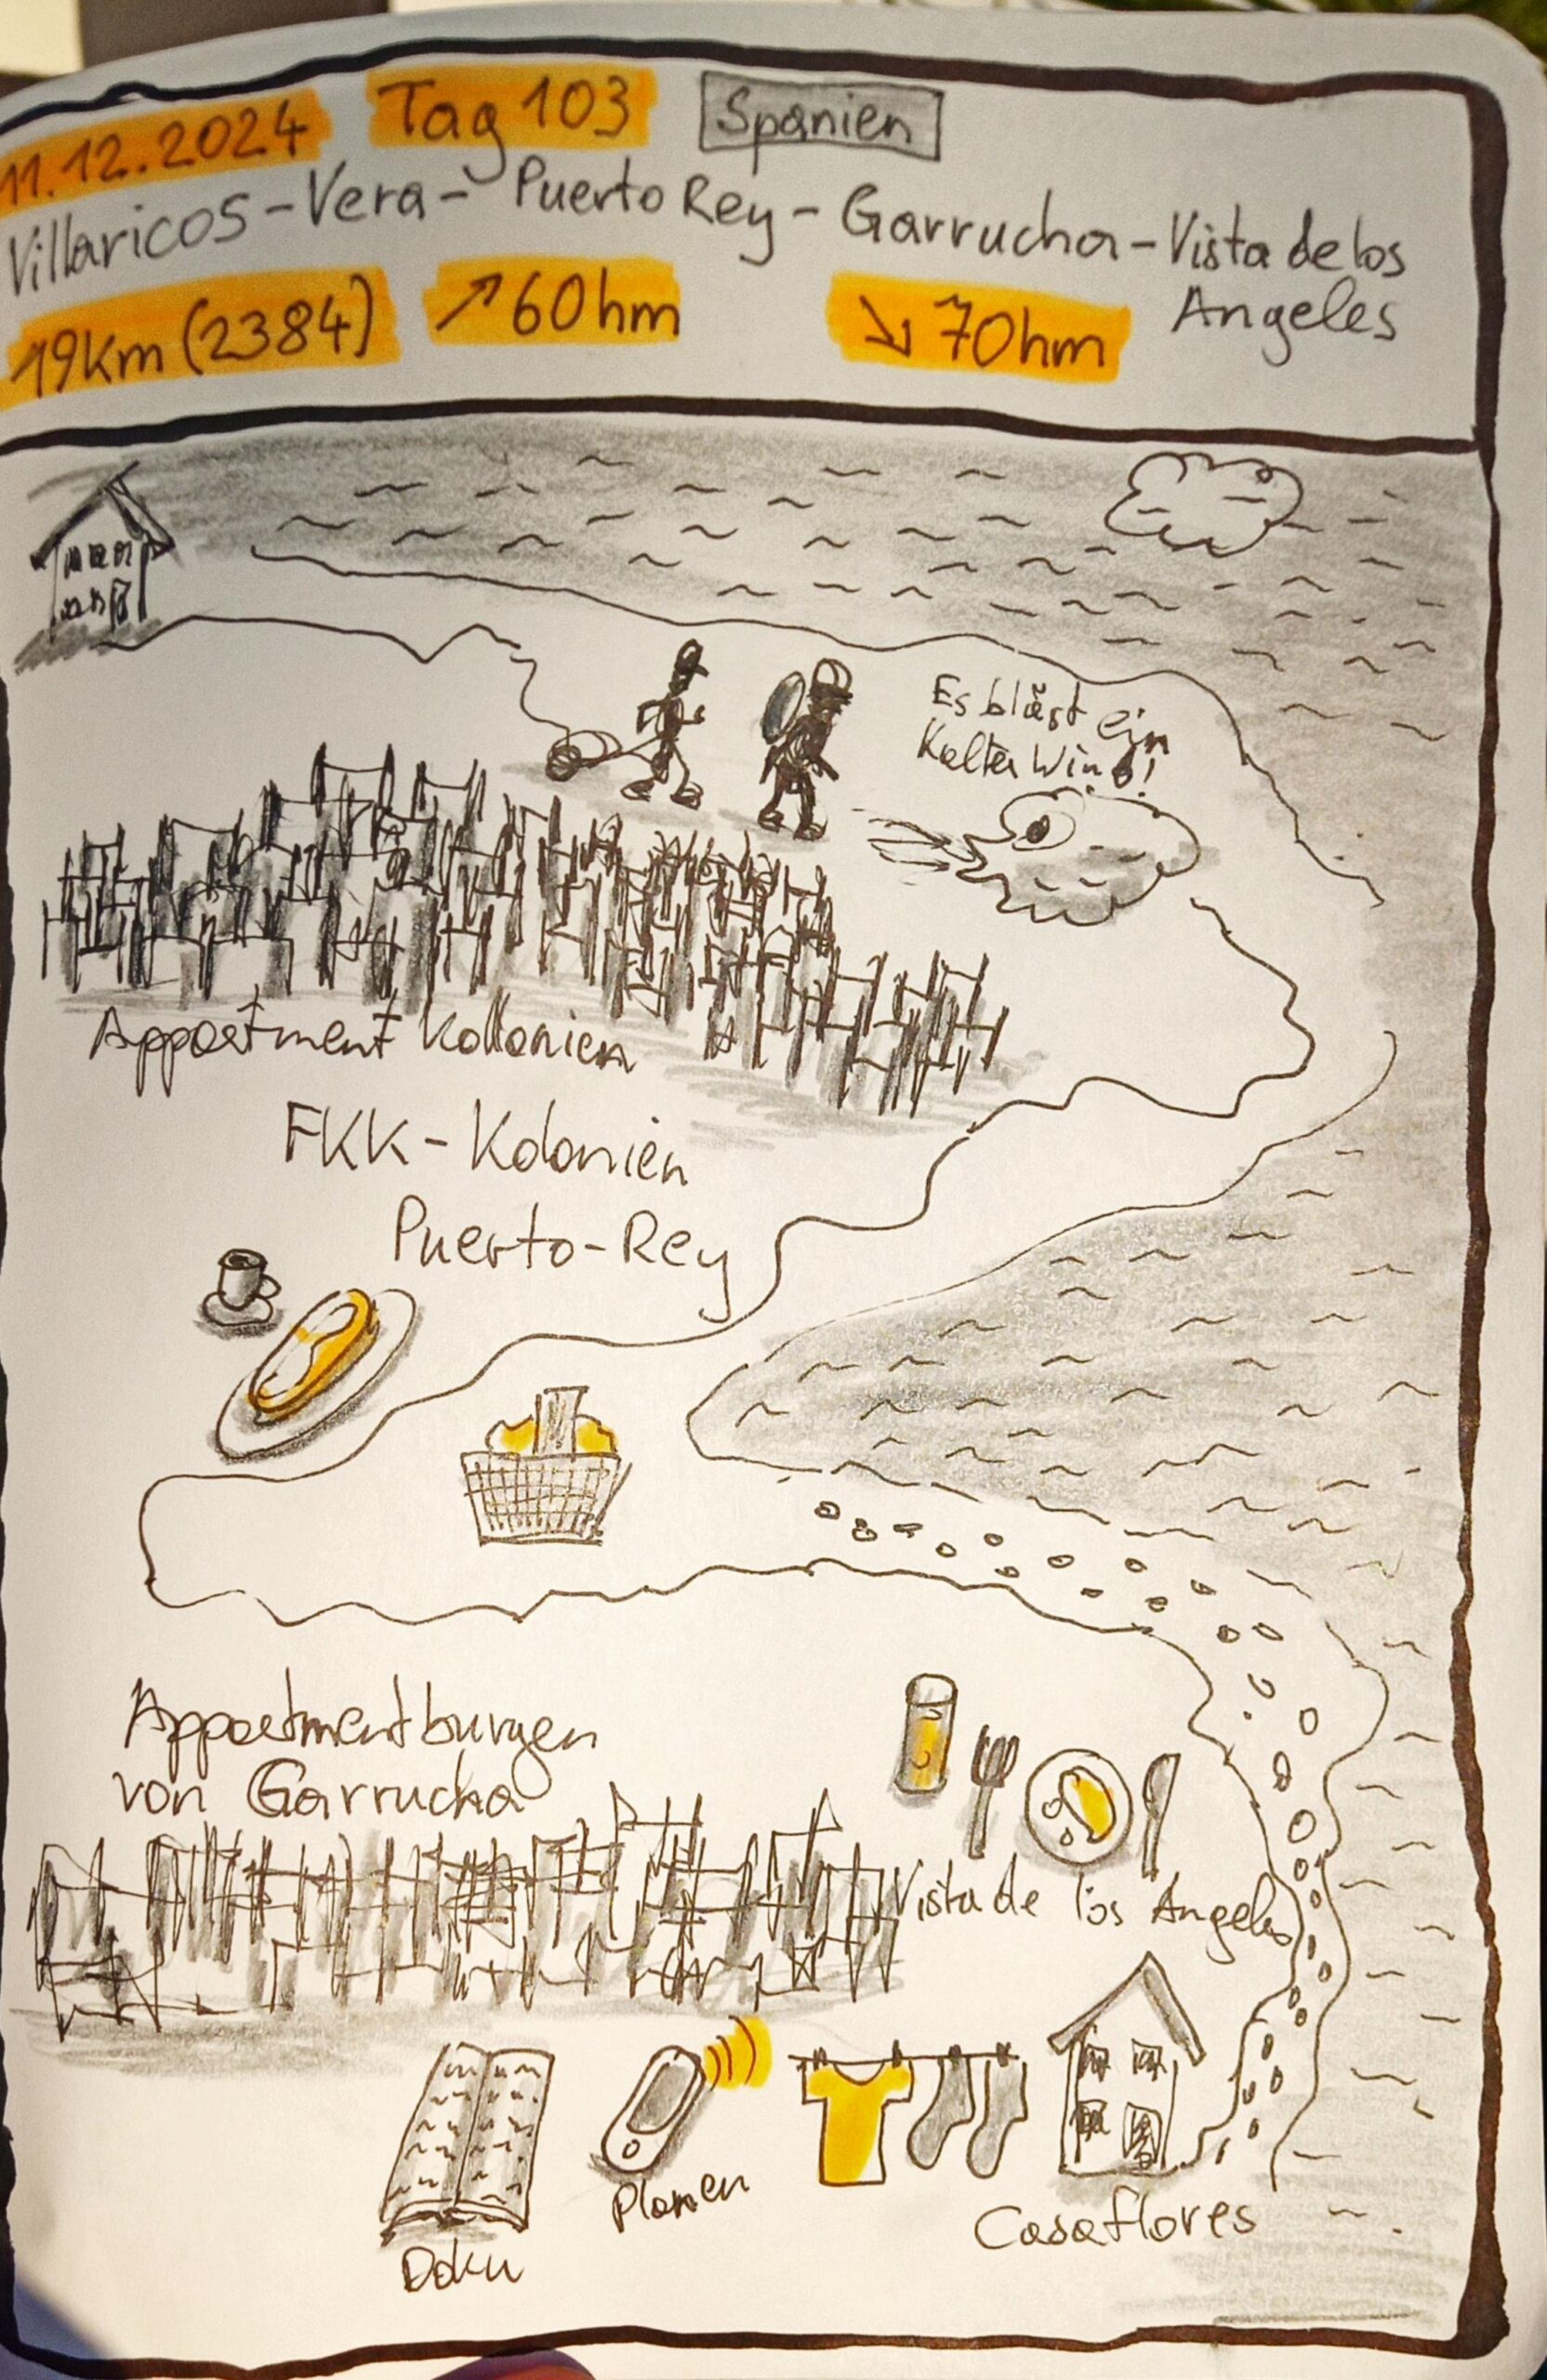 11.12.2024 Tag 103 Spanien
Villaricos-Vera-Puerto Rey-Garrucha-Vista de los
Angeles
19km (2384) ↗60hm ↘70hm
Es bläst ein
Kalter Wind!
Appartment Kollonien
FKK-Kolonien
Puerto-Rey
Appartmentburgen
von Garrucha
Vista de los Angeles
Planen
Casaflores
Doku